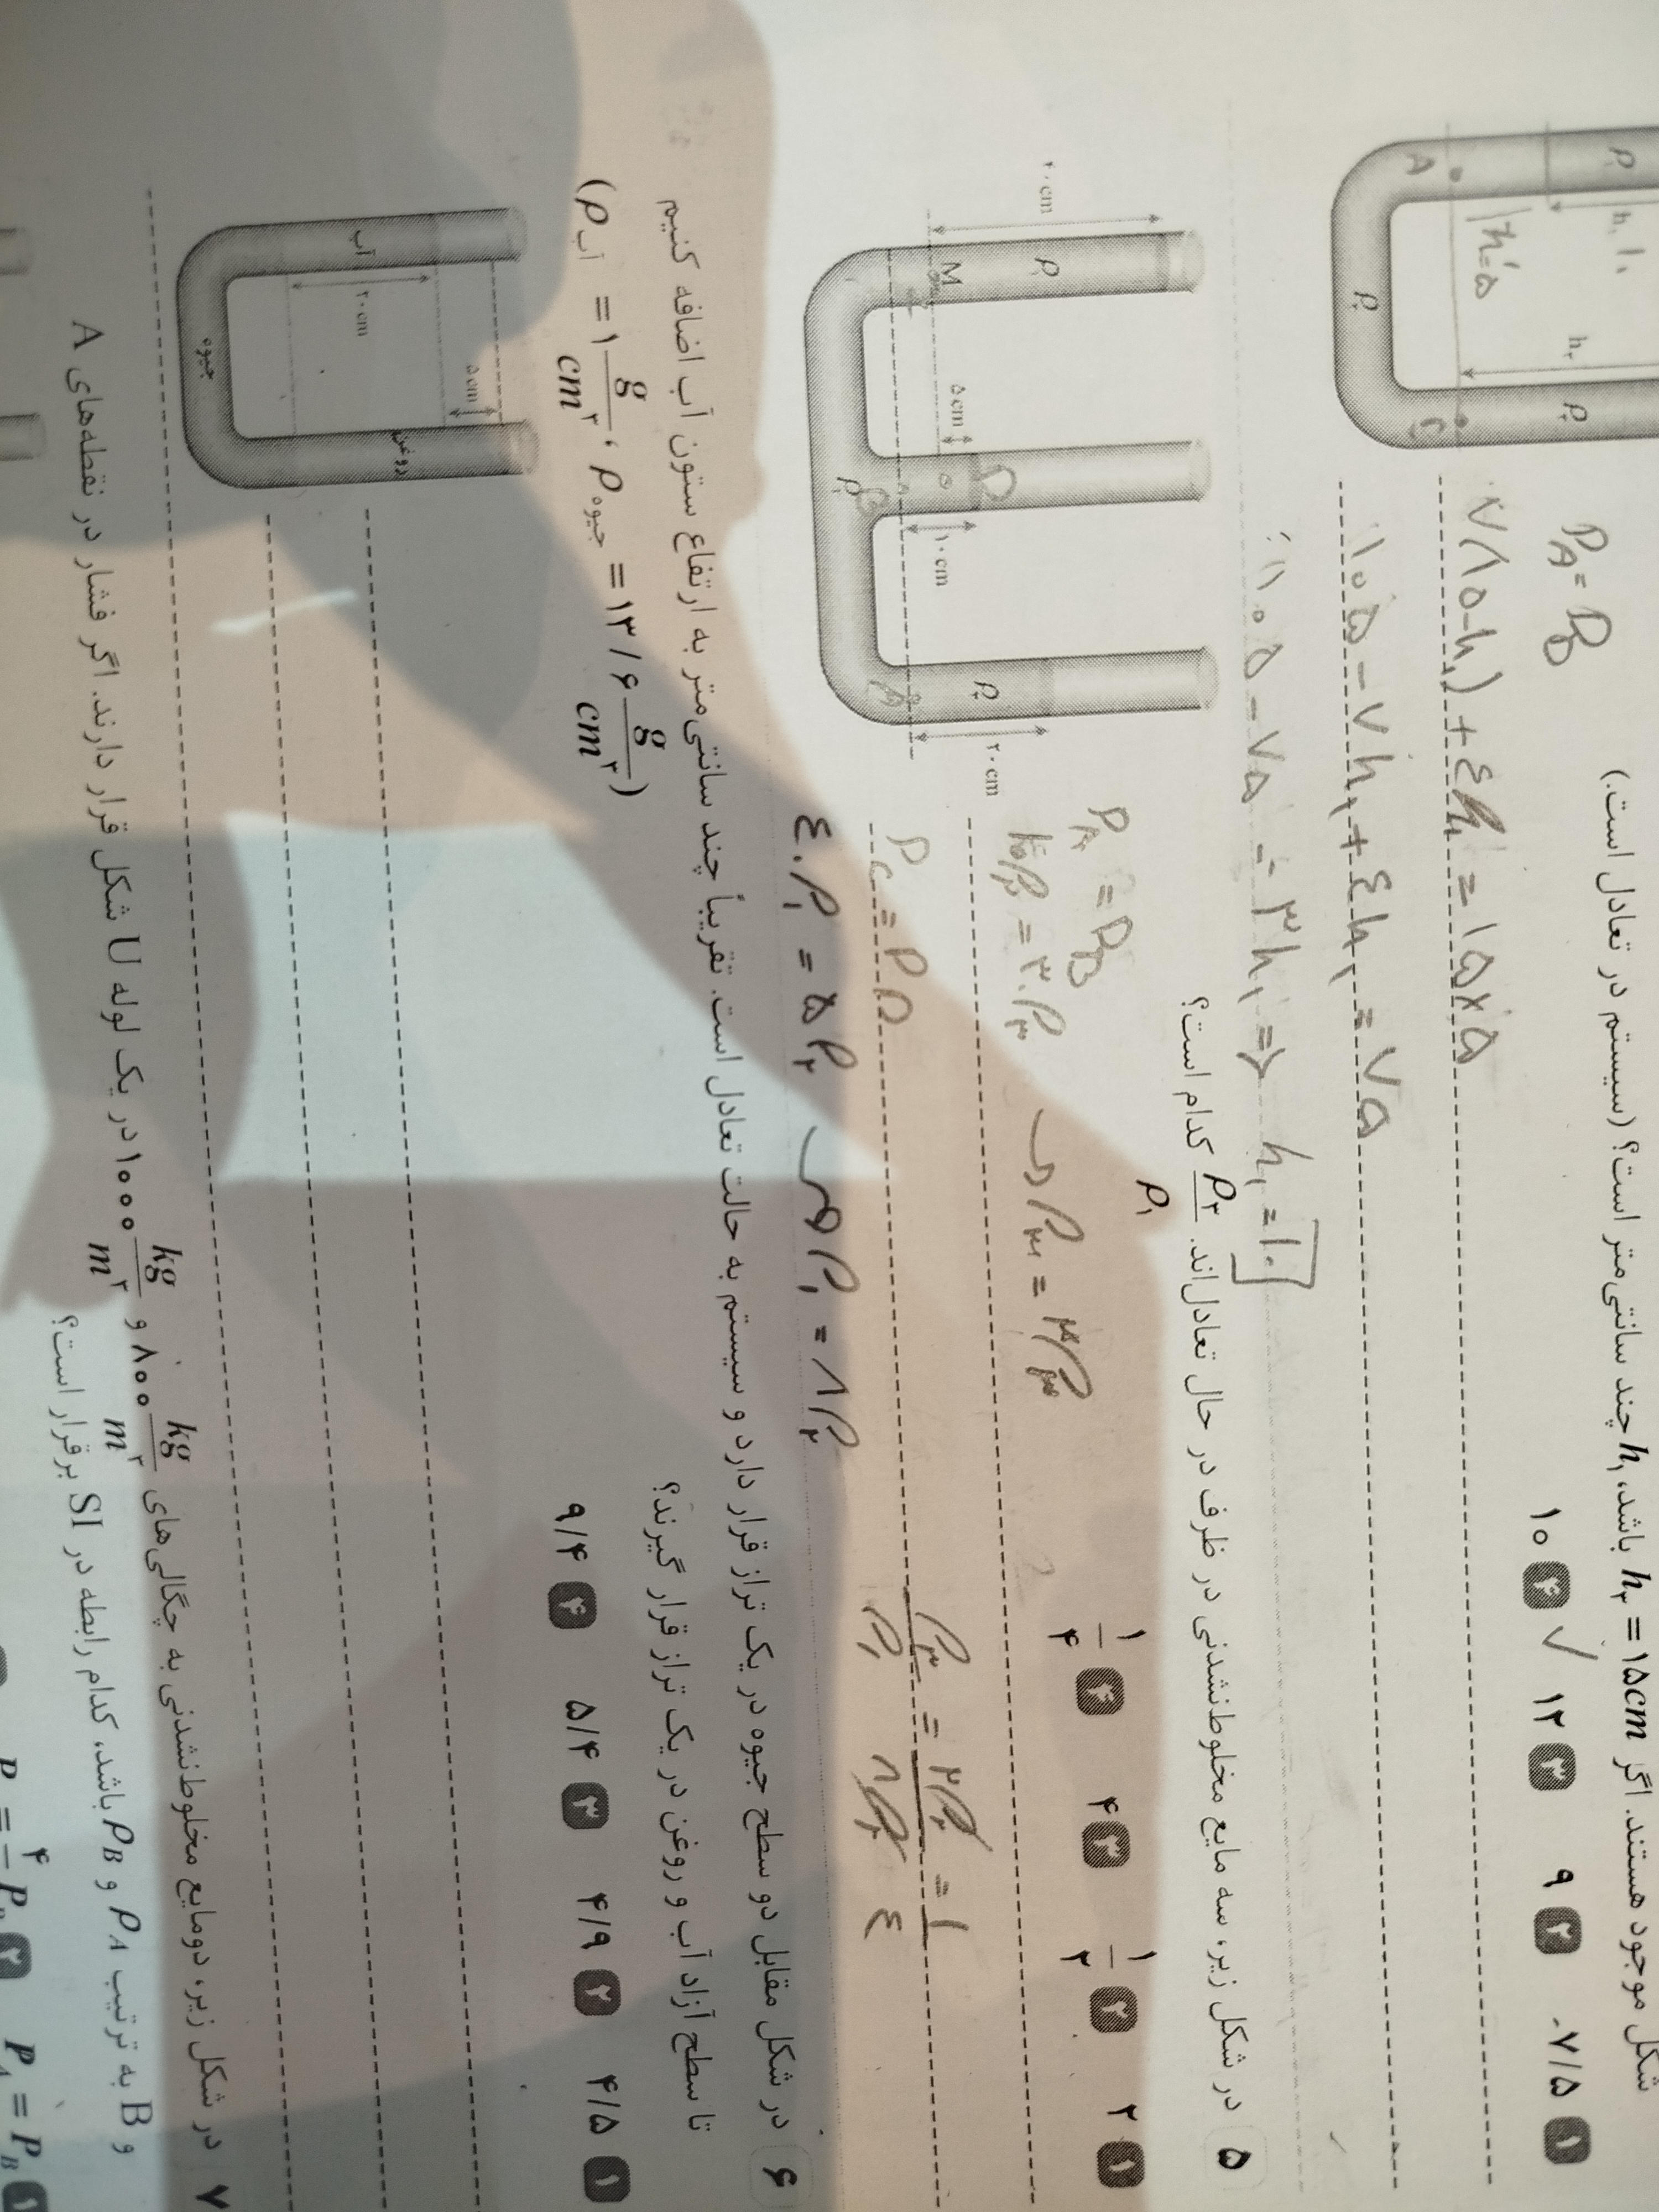 شکل موجود هستند. اگر h۲ = ۱۵cm باشد، h۱ چند سانتی‌متر است؟ (سیستم در تعادل است.)
۱ ۷/۵ ۲ ۹ ۳ ۱۲ ۴ ۱۰ ✓
ρ۱ h۱ ۱۰ h۲ ρ۲ h'=۵ A ρ
P_A = P_B
۷(۱۵-h۱) + ٤h۱ = ۱۵×۵
۱۰۵ - ۷h۱ + ٤h۱ = ۷۵
۱۰۵ - ۷۵ = ۳h۱ ⇒ h۱ = ۱۰
۵ در شکل زیر، سه مایع مخلوط‌نشدنی در ظرف در حال تعادل‌اند. ρ۳/ρ۱ کدام است؟
۱ ۲ ۲ ۱/۲ ۳ ۴ ۴ ۱/۴
۲۰cm ρ۱ M ۵cm ۱۰cm D B A ρ۲ ρ۳ ۲۰cm
P_A = P_B
P_C = P_D
٤۰ρ۱ = ۵ρ۲ → ρ۱ = ۸ρ۲
۶ در شکل مقابل دو سطح جیوه در یک تراز قرار دارد و سیستم به حالت تعادل است. تقریباً چند سانتی‌متر به ارتفاع ستون آب اضافه کنیم
تا سطح آزاد آب و روغن در یک تراز قرار گیرند؟
(ρآب = ۱ g/cm۳ ، ρجیوه = ۱۳/۶ g/cm۳)
۱ ۴/۵ ۲ ۴/۹ ۳ ۵/۴ ۴ ۹/۴
آب ۲۰cm ۵cm روغن جیوه
۷ در شکل زیر، دو مایع مخلوط‌نشدنی به چگالی‌های ۸۰۰ kg/m۳ و ۱۰۰۰ kg/m۳ در یک لوله U شکل قرار دارند. اگر فشار در نقطه‌های A
و B به ترتیب P_A و P_B باشد، کدام رابطه در SI برقرار است؟
۱ P_A = P_B ۲